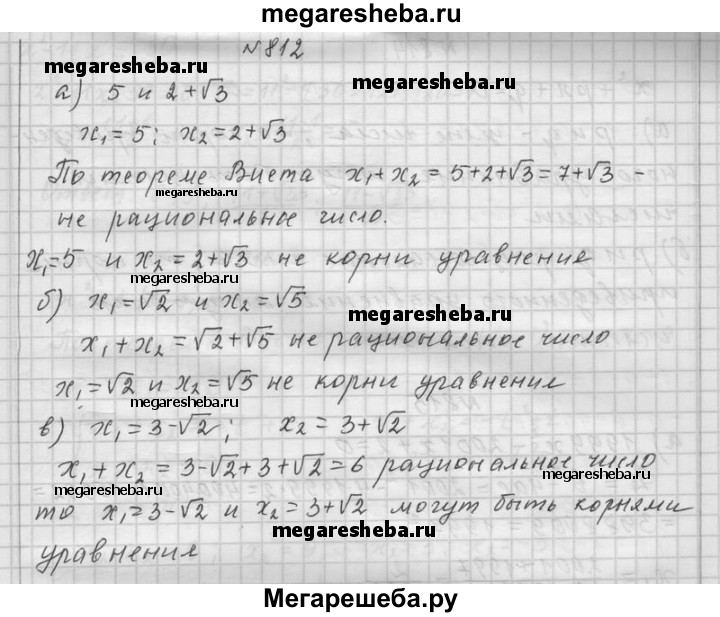 megaresheba.ru
№812
megaresheba.ru
megaresheba.ru
а) 5 и 2+√3
x₁=5; x₂=2+√3
По теореме Виета x₁+x₂=5+2+√3=7+√3 -
megaresheba.ru
megaresheba.ru
не рациональное число.
x₁=5 и x₂=2+√3 не корни уравнение
megaresheba.ru
б) x₁=√2 и x₂=√5
megaresheba.ru
x₁+x₂=√2+√5 не рациональное число
x₁=√2 и x₂=√5 не корни уравнения
megaresheba.ru
в) x₁=3-√2; x₂=3+√2
x₁+x₂=3-√2+3+√2=6 рациональное число
megaresheba.ru
megaresheba.ru
то x₁=3-√2 и x₂=3+√2 могут быть корнями
megaresheba.ru
уравнения
Мегарешеба.ру